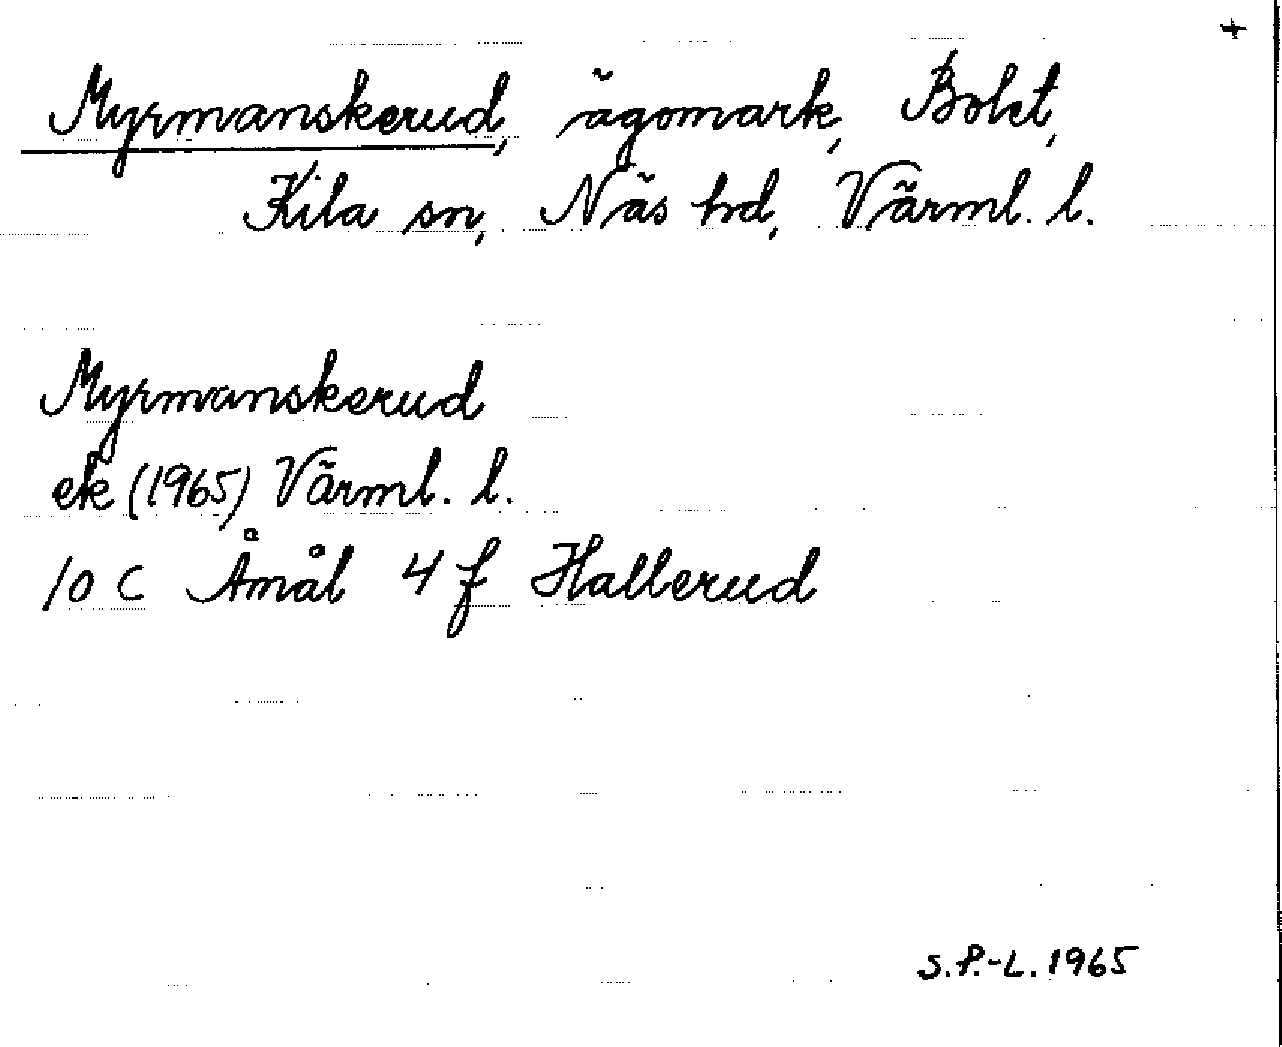 +
Myrmanskerud, ägomark, Bohl,
Kila sn, Näs hd, Värml. l.
Myrmanskerud
ek (1965) Värml. l.
10 C Åmål 4 f Hallerud
S.P.-L. 1965